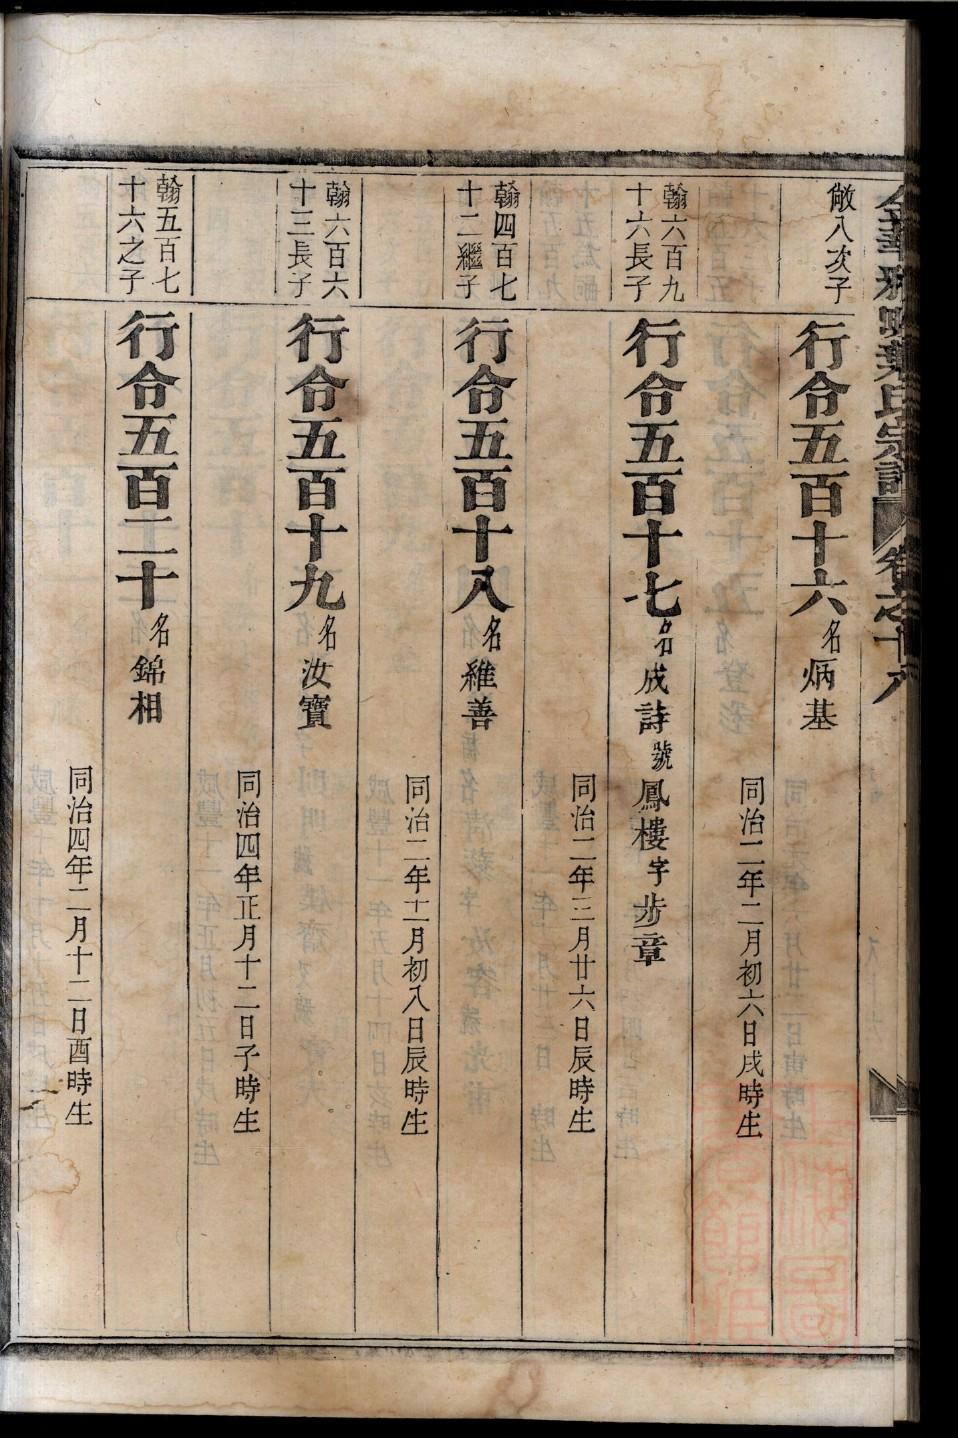 敞八次子
行令五百十六名炳基
同治二年二月初六日戌時生
翰六百九
十六長子
行令五百十七名成詩號鳳樓字步章
同治二年三月廿六日辰時生
翰四百七
十二繼子
行令五百十八名維善
同治二年十二月初八日辰時生
翰六百六
十三長子
行令五百十九名汝寶
同治四年正月十二日子時生
翰五百七
十六之子
行令五百二十名錦相
同治四年二月十二日酉時生